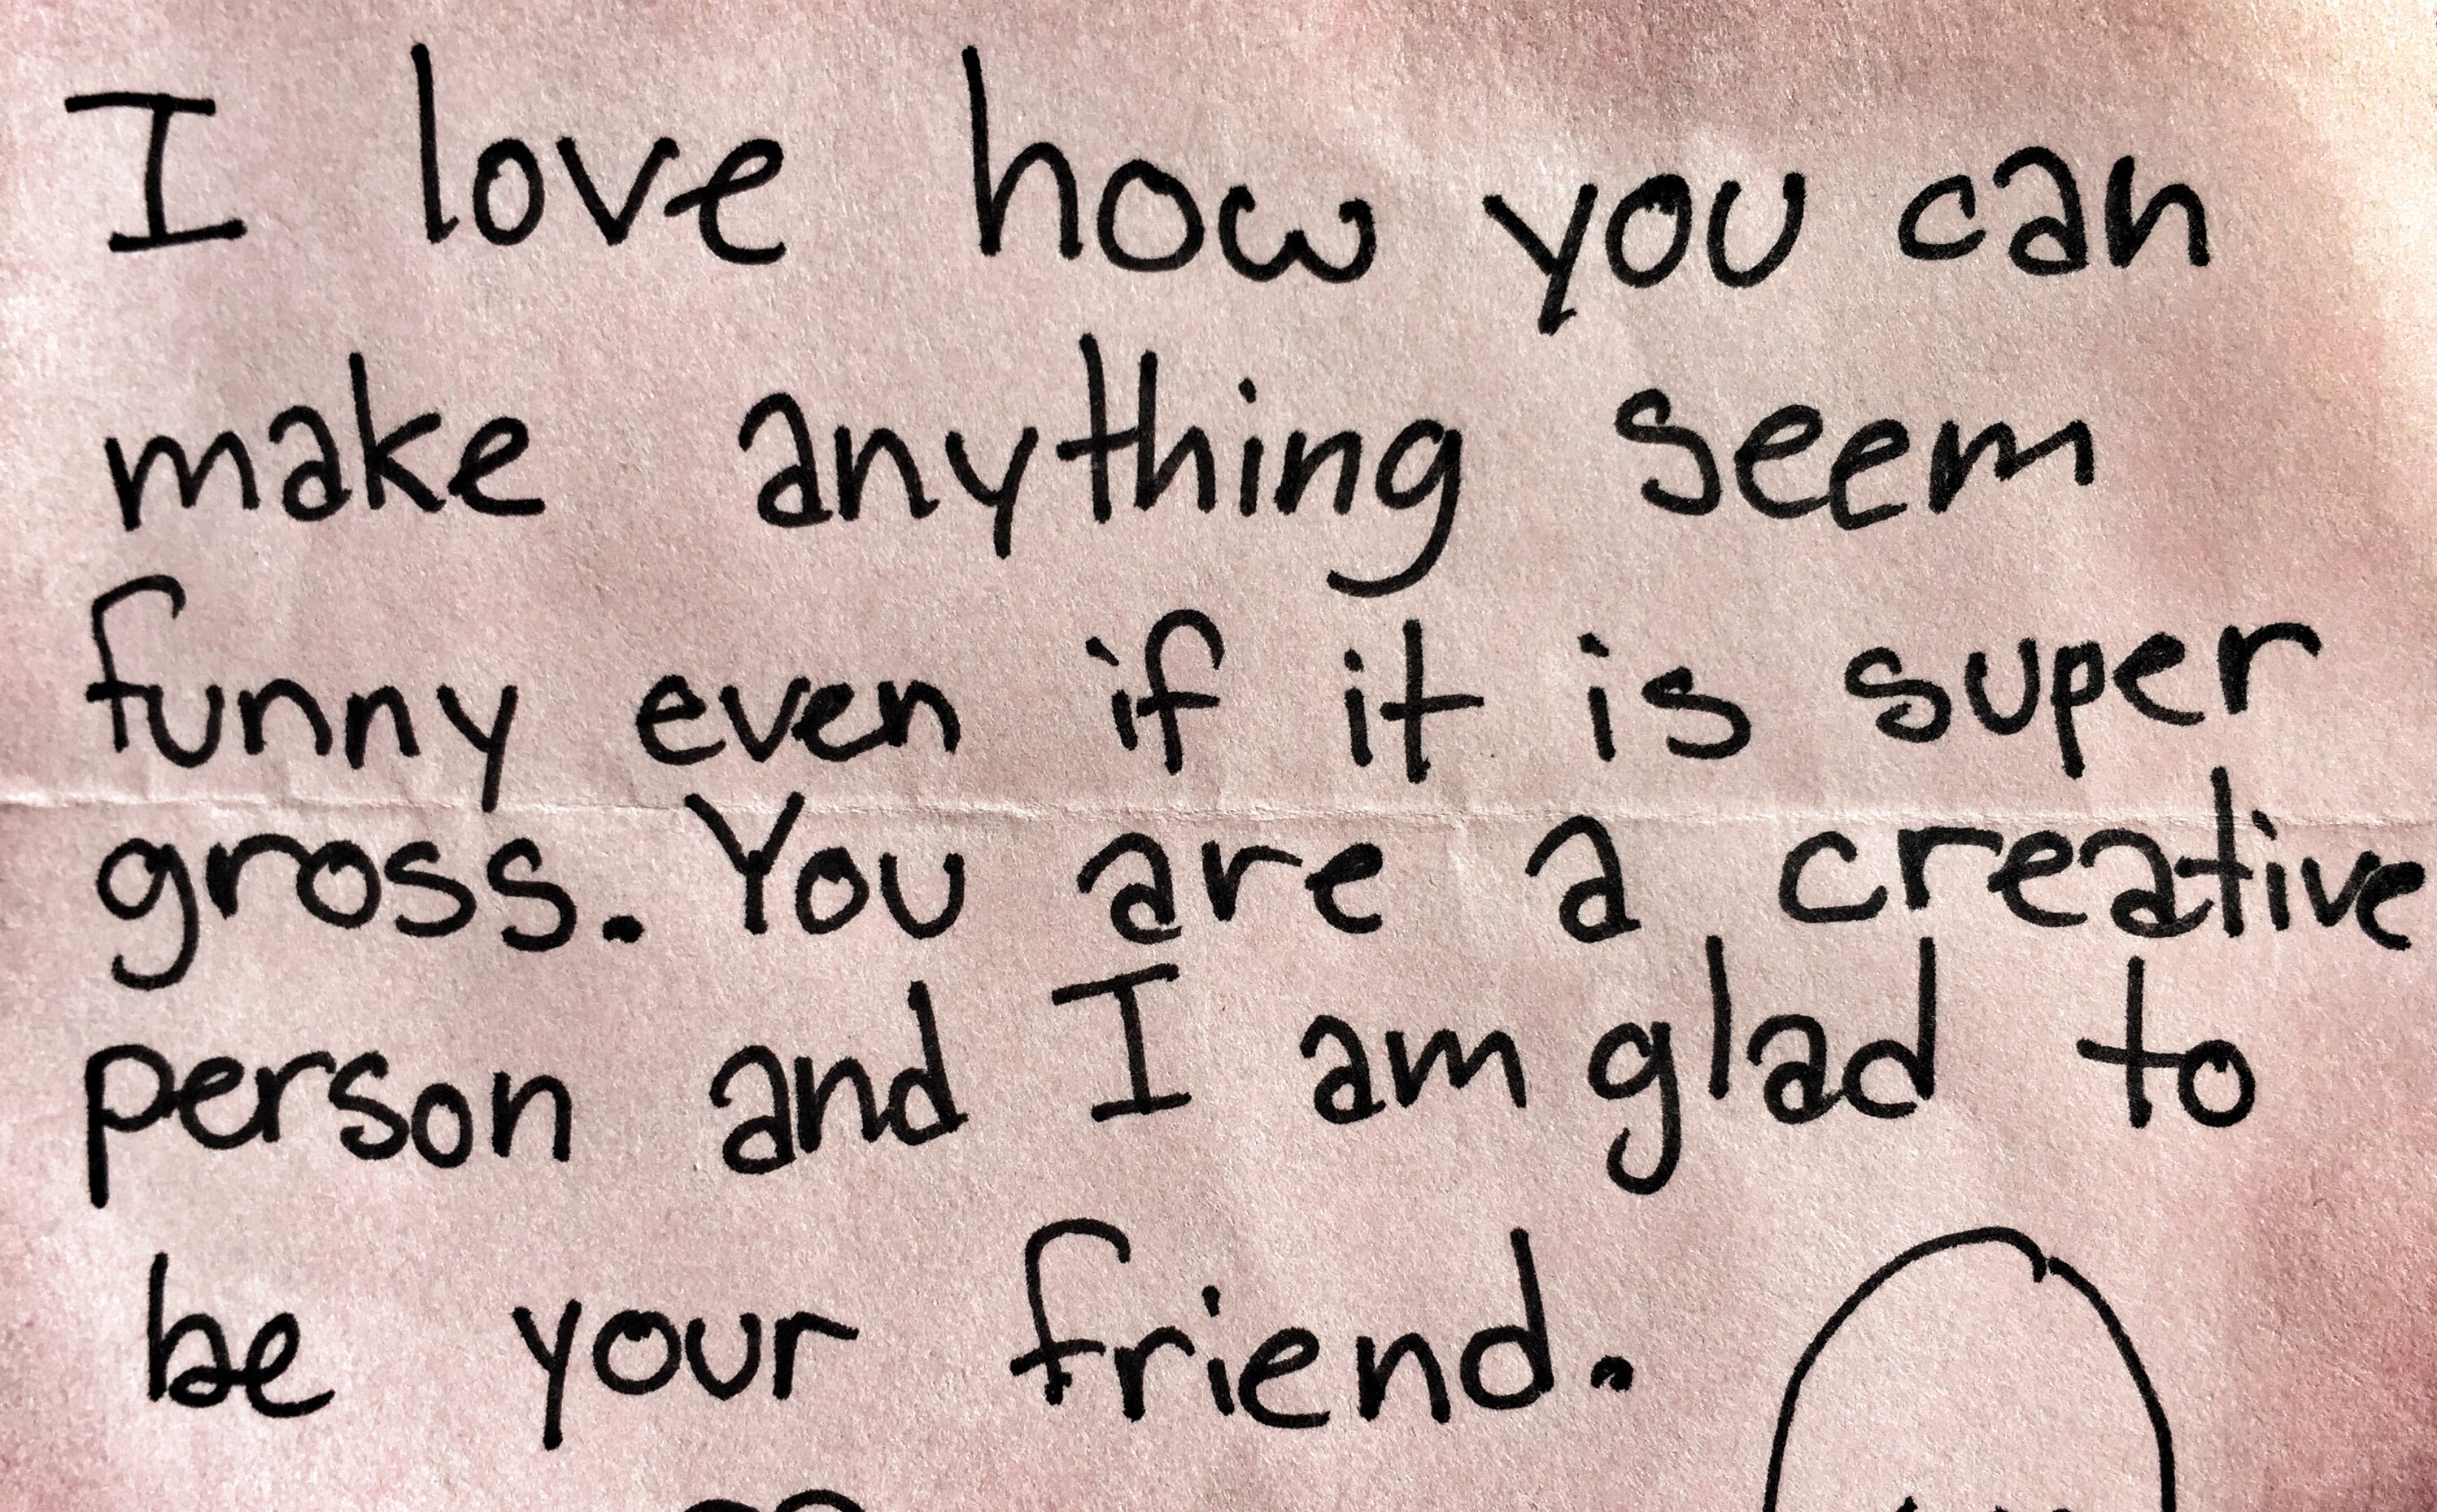 I love how you can
make anything seem
funny even if it is super
gross. You are a creative
person and I am glad to
be your friend.